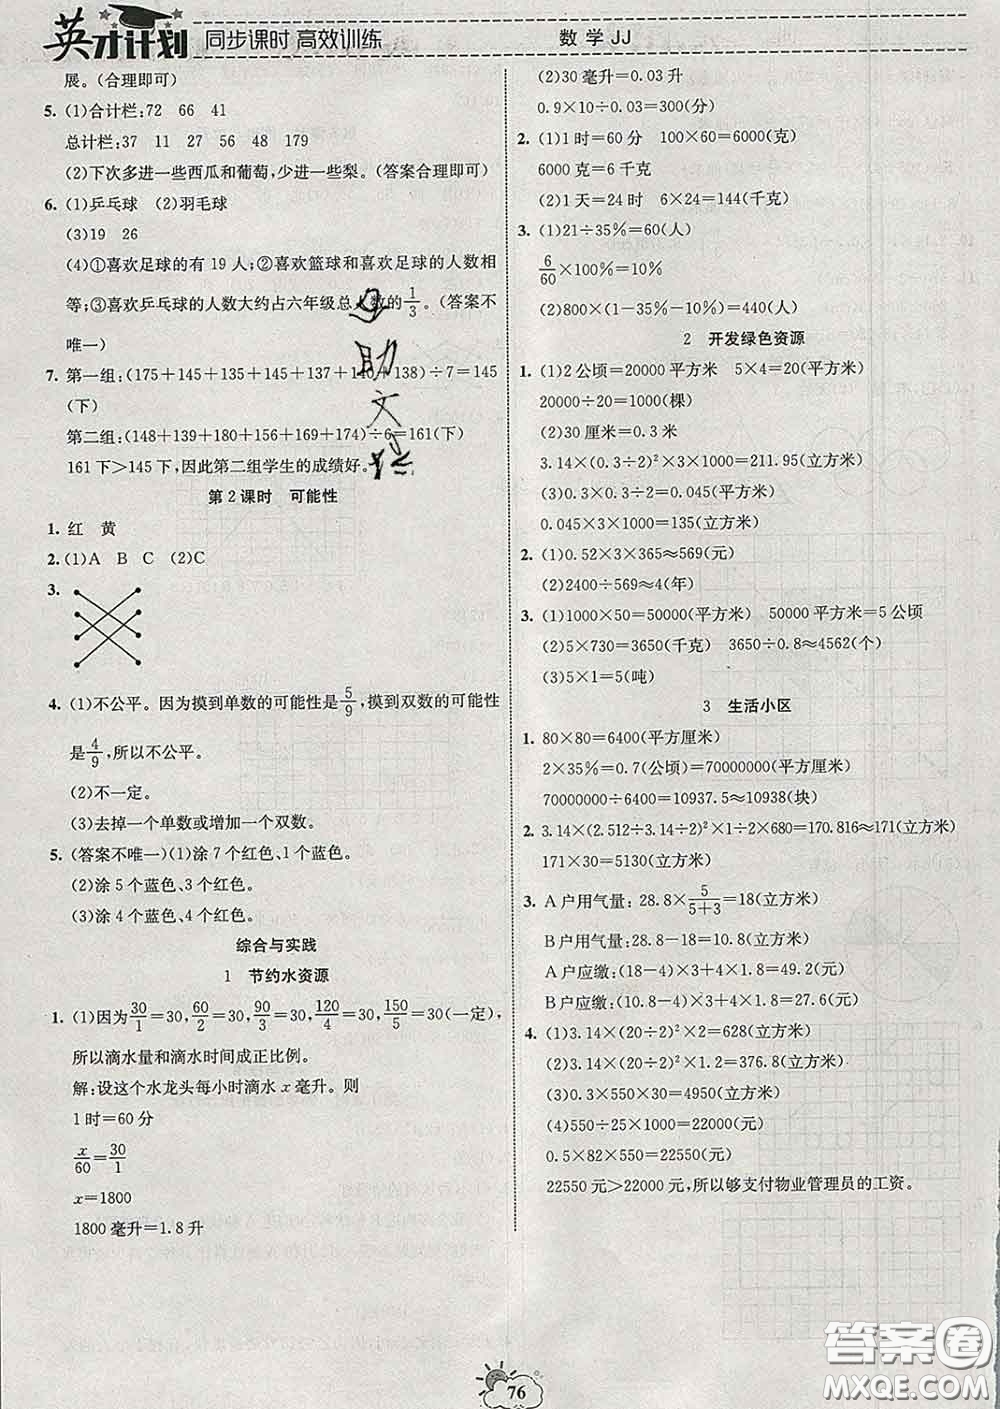 英才计划 同步课时 高效训练 数学 JJ
展。(合理即可)
5. (1)合计栏:72 66 41
总计栏:37 11 27 56 48 179
(2)下次多进一些西瓜和葡萄,少进一些梨。(答案合理即可)
6. (1)乒乓球 (2)羽毛球
(3)19 26
(4)①喜欢足球的有 19 人;②喜欢篮球和喜欢足球的人数相
等;③喜欢乒乓球的人数大约占六年级总人数的1/3。(答案不
唯一)
7. 第一组:(175+145+135+145+137+140+138)÷7=145
(下)
第二组:(148+139+180+156+169+174)÷6=161(下)
161 下>145 下,因此第二组学生的成绩好。
第 2 课时 可能性
1. 红 黄
2. (1)A B C (2)C
3.
4. (1)不公平。因为摸到单数的可能性是5/9,摸到双数的可能性
是4/9,所以不公平。
(2)不一定。
(3)去掉一个单数或增加一个双数。
5. (答案不唯一)(1)涂 7 个红色、1 个蓝色。
(2)涂 5 个蓝色、3 个红色。
(3)涂 4 个蓝色、4 个红色。
综合与实践
1 节约水资源
1. (1)因为30/1=30,60/2=30,90/3=30,120/4=30,150/5=30(一定),
所以滴水量和滴水时间成正比例。
解:设这个水龙头每小时滴水 x 毫升。则
1 时=60 分
x/60=30/1
x=1800
1800 毫升=1.8 升
(2)30 毫升=0.03 升
0.9×10÷0.03=300(分)
2. (1)1 时=60 分 100×60=6000(克)
6000 克=6 千克
(2)1 天=24 时 6×24=144(千克)
3. (1)21÷35%=60(人)
6/60×100%=10%
(2)800×(1-35%-10%)=440(人)
2 开发绿色资源
1. (1)2 公顷=20000 平方米 5×4=20(平方米)
20000÷20=1000(棵)
(2)30 厘米=0.3 米
3.14×(0.3÷2)²×3×1000=211.95(立方米)
(3)0.3×0.3÷2=0.045(平方米)
0.045×3×1000=135(立方米)
2. (1)0.52×3×365≈569(元)
(2)2400÷569≈4(年)
3. (1)1000×50=50000(平方米) 50000 平方米=5 公顷
(2)5×730=3650(千克) 3650÷0.8≈4562(个)
(3)5×1=5(吨)
3 生活小区
1. 80×80=6400(平方厘米)
2×35%=0.7(公顷)=70000000(平方厘米)
70000000÷6400=10937.5≈10938(块)
2. 3.14×(2.512÷3.14÷2)²×1÷2×680=170.816≈171(立方米)
171×30=5130(立方米)
3. A 户用气量:28.8×5/(5+3)=18(立方米)
B 户用气量:28.8-18=10.8(立方米)
A 户应缴:(18-4)×3+4×1.8=49.2(元)
B 户应缴:(10.8-4)×3+4×1.8=27.6(元)
4. (1)3.14×(20÷2)²×2=628(立方米)
(2)3.14×(20÷2)²×1.2=376.8(立方米)
(3)0.3×550×30=4950(立方米)
(4)550÷25×1000=22000(元)
0.5×82×550=22550(元)
22550 元>22000 元,所以够支付物业管理员的工资。
76
答案圈
MXQE.COM